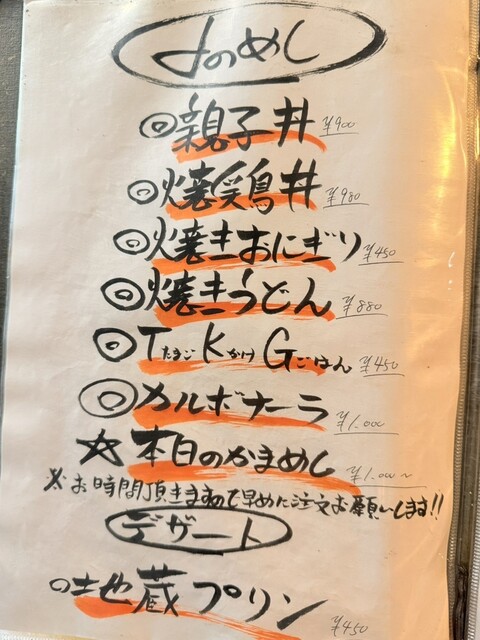 〆のめし
◎親子丼 ¥900
◎焼鶏丼 ¥980
◎焼きおにぎり ¥450
◎焼きうどん ¥880
◎TたまごKかけGごはん ¥450
◎カルボナーラ ¥1.000
☆本日のかまめし ¥1.000~
※お時間頂きますので早めに注文お願いします!!
デザート
地蔵プリン ¥450